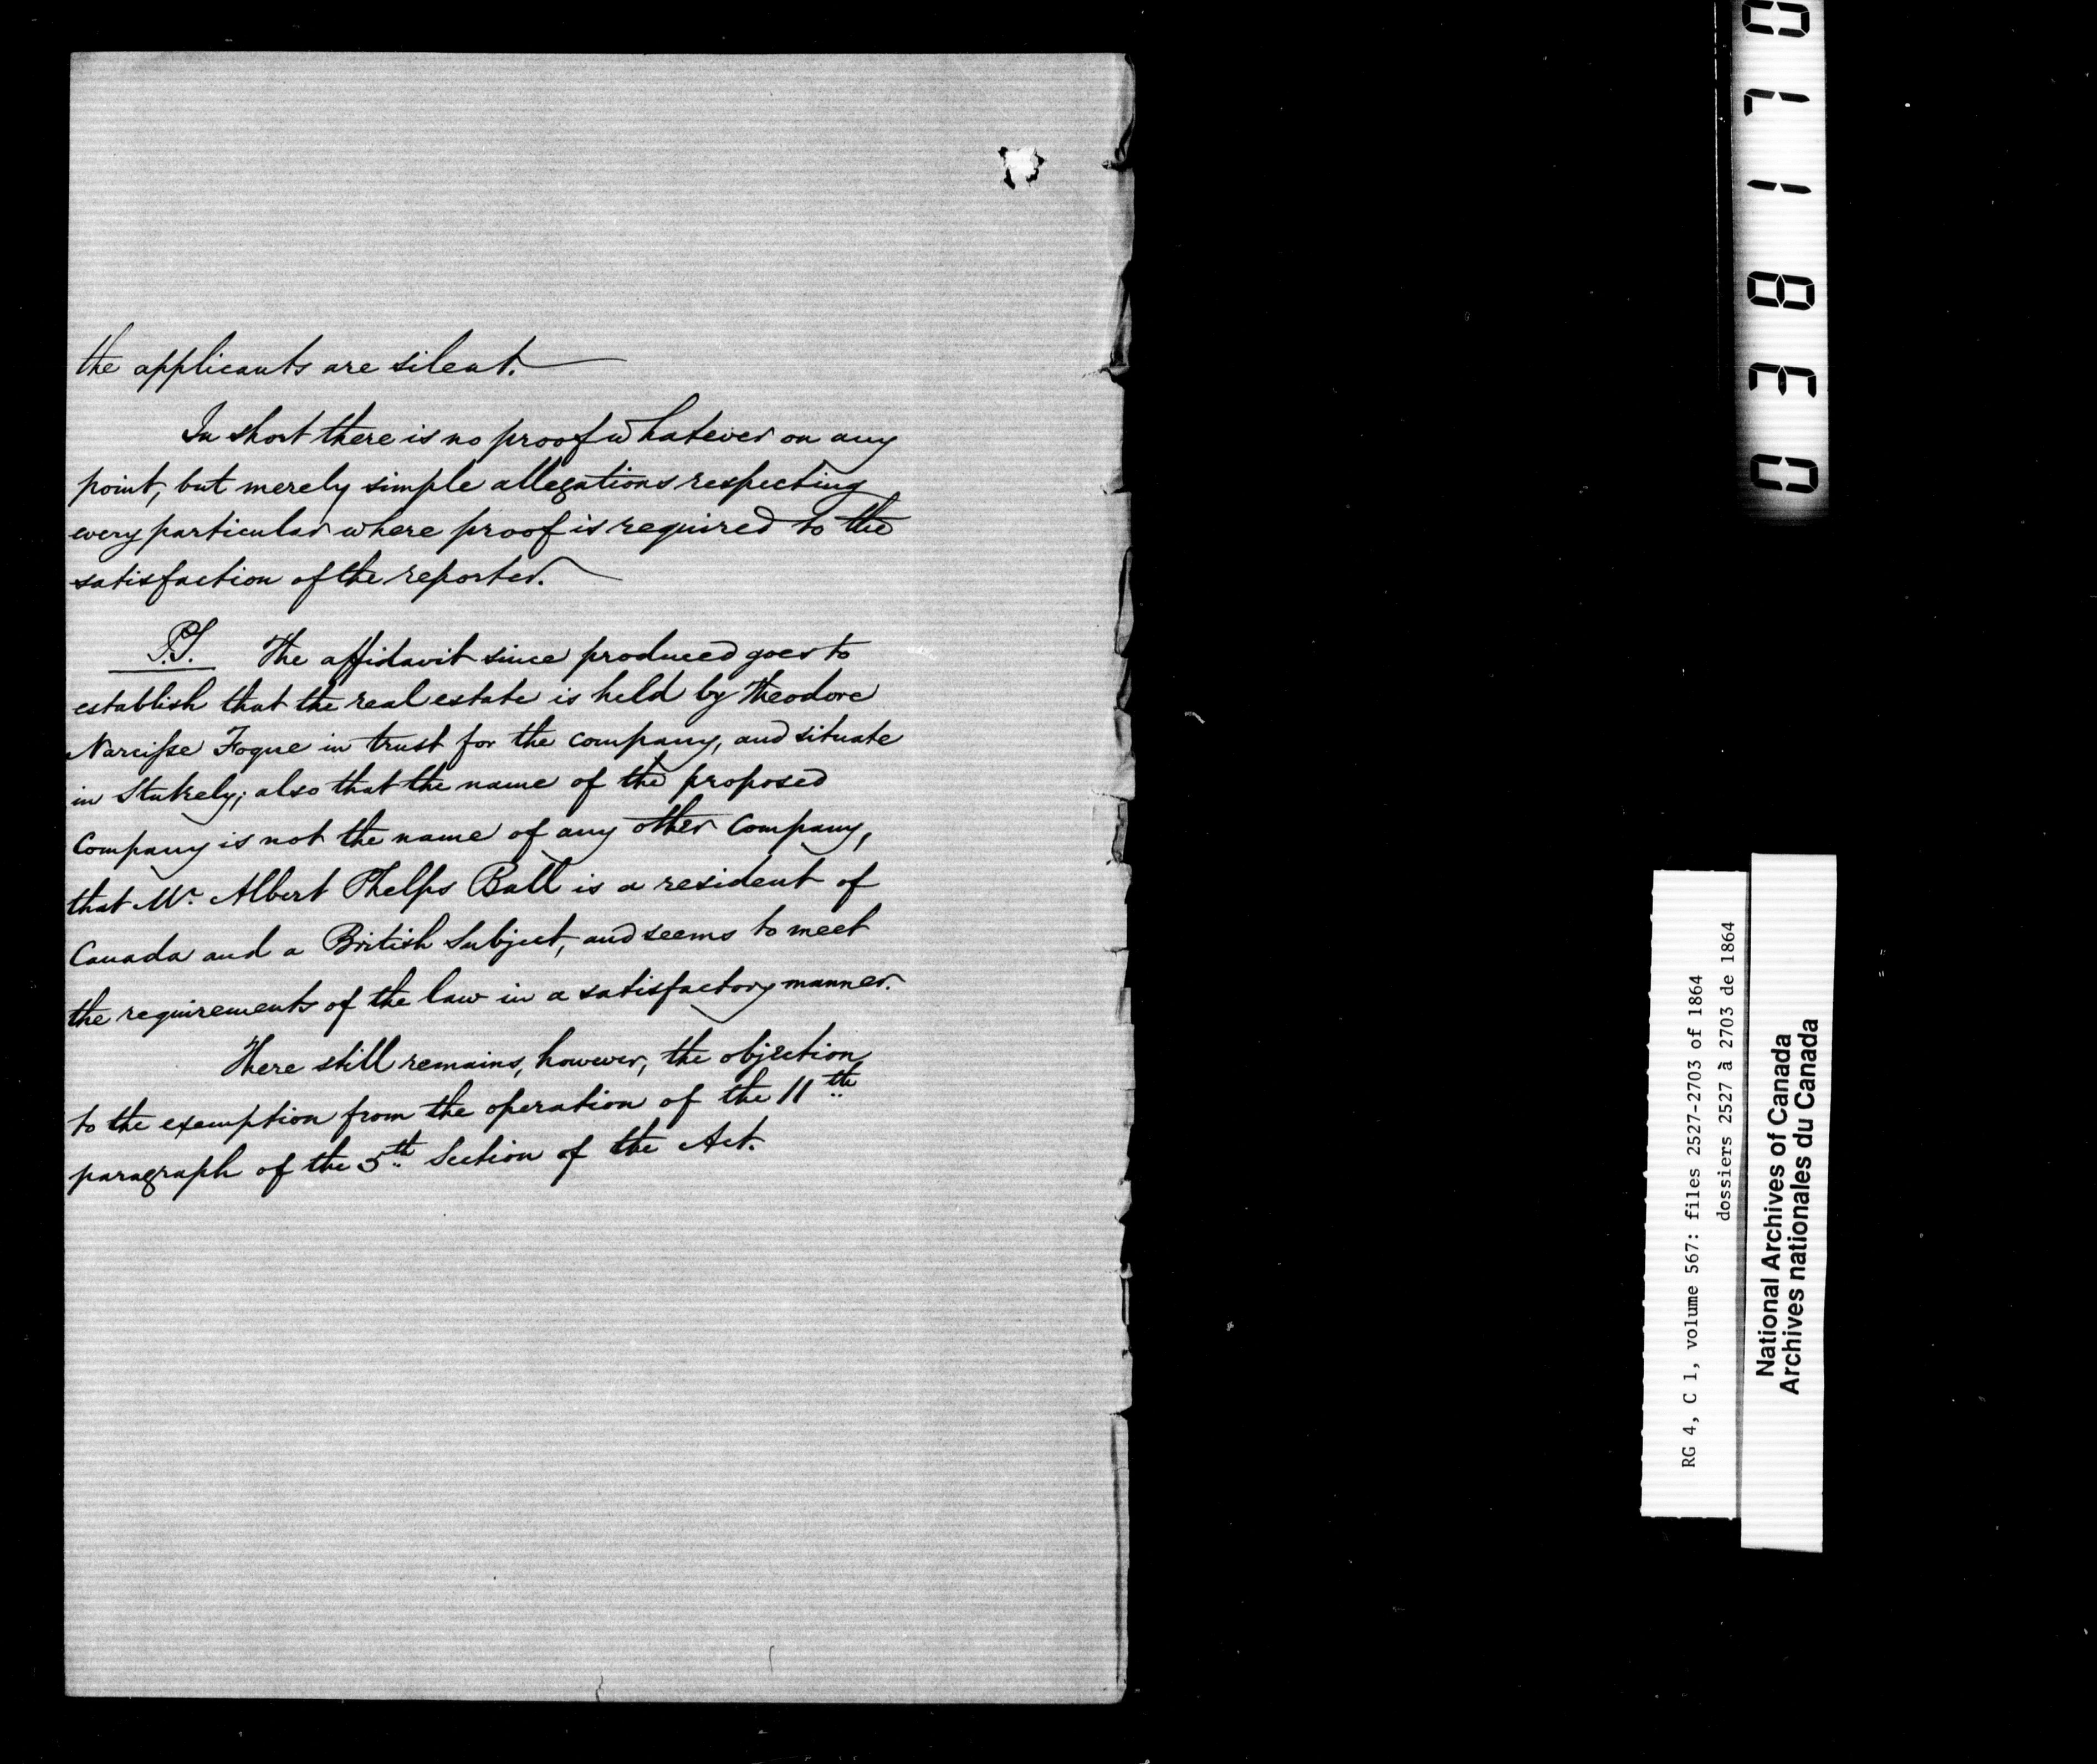 the applicants are silent.
In short there is no proof whatever on any
point, but merely simple allegations respecting
every particular where proof is required to the
satisfaction of the reporter.
P.S. The affidavit since produced goes to
establish that the real estate is held by Theodore
Narcisse Foque in trust for the company, and situate
in Stukely; also that the name of the proposed
Company is not the name of any other Company,
that Mr. Albert Phelps Ball is a resident of
Canada and a British Subject, and seems to meet
the requirements of the law in a satisfactory manner.
There still remains, however, the objection
to the exemption from the operation of the 11th
paragraph of the 5th Section of the Act.
038170
RG 4, C 1, volume 567: files 2527-2703 of 1864
dossiers 2527 à 2703 de 1864
National Archives of Canada
Archives nationales du Canada